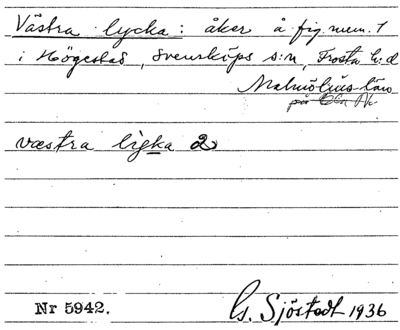 Västra lycka: åker å fig. num. 1
i Högestad, Svensköps s:n, Frosta h:d
Malmöhus län
væstra lyka 2
Nr 5942.
G. Sjöstedt 1936